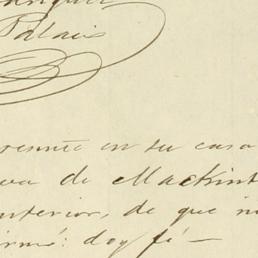 Palacio
en su casa
de Mackint
anterior, de que no
firmó: doy fé —